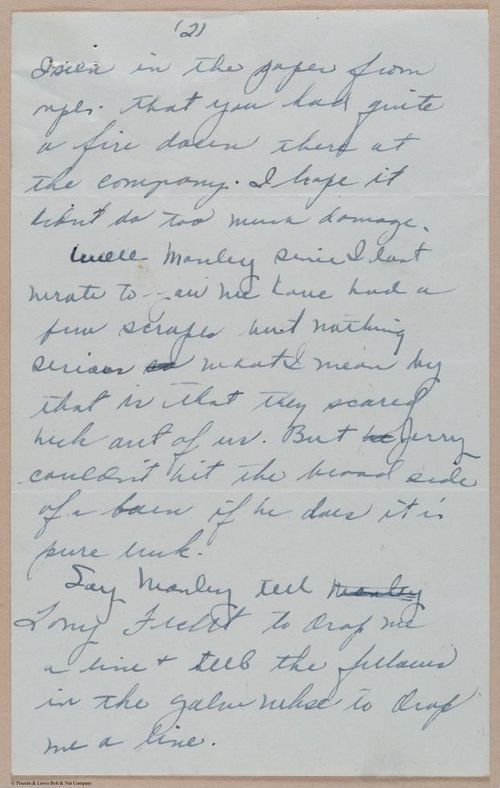 '2)
I seen in the paper from
mpls. that you had quite
a fire down there at
the company. I hope it
didn't do too much damage.
Well Manley since I last
wrote to you we have had a
few scrapes but nothing
serious so what I mean by
that is that they scared
heck out of us. But he Jerry
couldn't hit the broad side
of a barn if he does it is
pure luck.
Say Manley tell Manley
Tony to drop me
a line + tell the fellows
in the to drop
me a line.
© Pioneer & Lewis Bolt & Nut Company